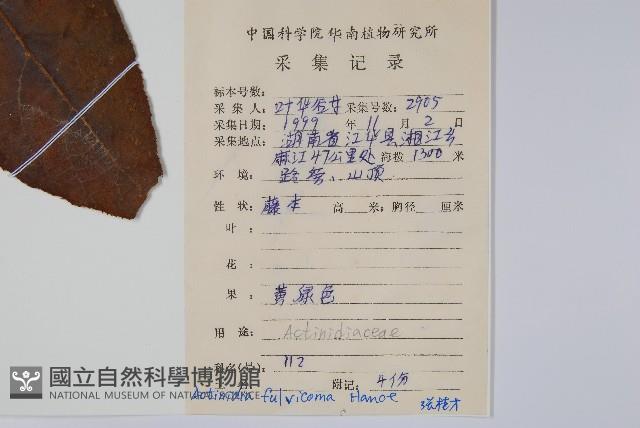 中国科学院华南植物研究所
采集记录
标本号数：
采集人：叶华谷等 采集号数：2905
采集日期：1999 年 11 月 2 日
采集地点：湖南省江华县湘江乡
麻江47公里处 海拨 1300 米
环境：路旁、山顶
性状：藤本 高 米；胸径 厘米
叶：
花：
果：黄绿色
用途：Actinidiaceae
科名(号) 112
附记：4份
Actinidia fulvicoma Hance
國立自然科學博物館
NATIONAL MUSEUM OF NATURAL SCIENCE